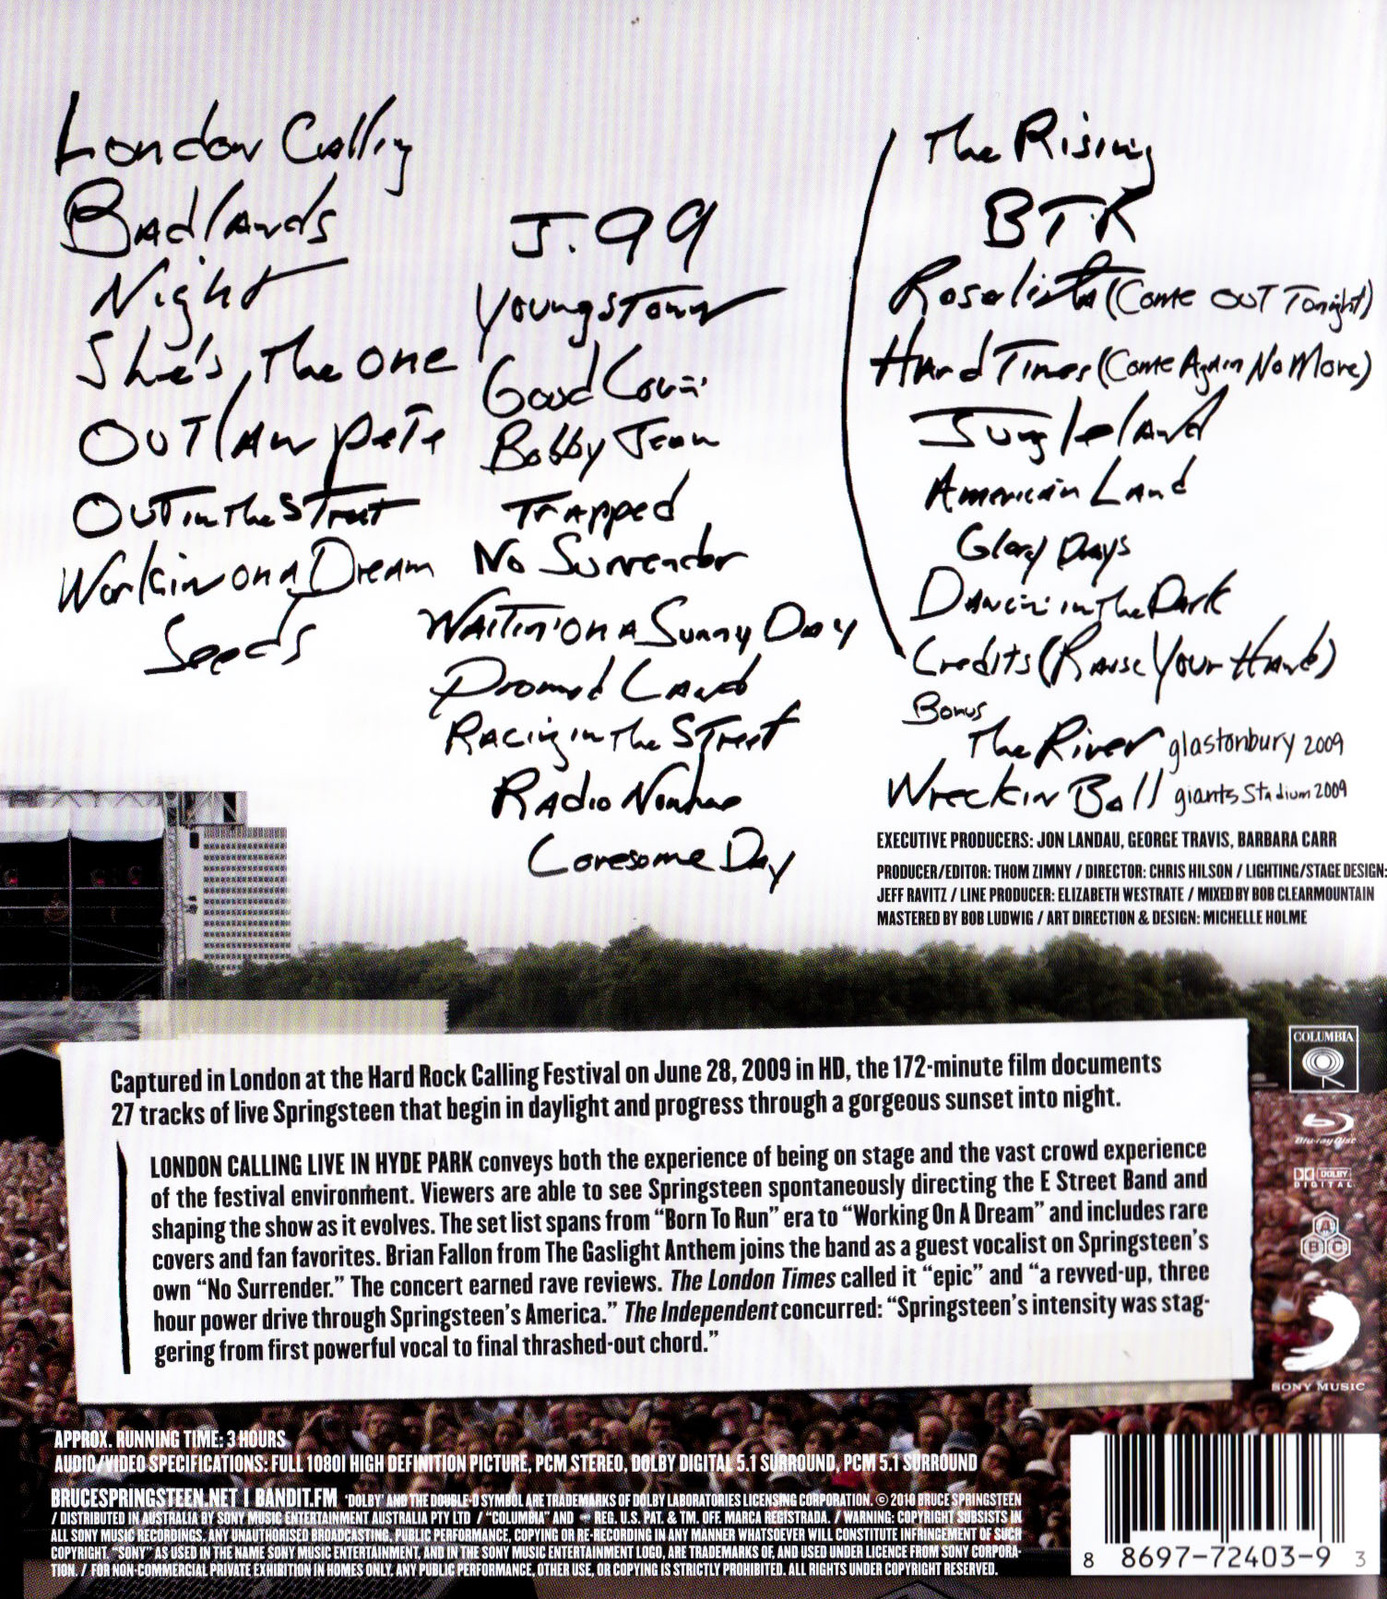 London Calling
Badlands
Night
She's, The One
Outlaw Pete
Out in The Street
Workin on a Dream
Seeds
J. 99
Youngstown
Good Lovin'
Bobby Jean
Trapped
No Surrender
Waitin' on a Sunny Day
Promised Land
Racing in The Street
Radio Nowhere
Lonesome Day
The Rising
BTR
Rosalita (Come Out Tonight)
Hard Times (Come Again No More)
Jungleland
American Land
Glory Days
Dancin' in The Dark
Credits (Raise Your Hand)
Bonus
The River glastonbury 2009
Wreckin Ball giants Stadium 2009
EXECUTIVE PRODUCERS: JON LANDAU, GEORGE TRAVIS, BARBARA CARR
PRODUCER/EDITOR: THOM ZIMNY / DIRECTOR: CHRIS HILSON / LIGHTING/STAGE DESIGN:
JEFF RAVITZ / LINE PRODUCER: ELIZABETH WESTRATE / MIXED BY BOB CLEARMOUNTAIN
MASTERED BY BOB LUDWIG / ART DIRECTION & DESIGN: MICHELLE HOLME
Captured in London at the Hard Rock Calling Festival on June 28, 2009 in HD, the 172-minute film documents
27 tracks of live Springsteen that begin in daylight and progress through a gorgeous sunset into night.
LONDON CALLING LIVE IN HYDE PARK conveys both the experience of being on stage and the vast crowd experience
of the festival environment. Viewers are able to see Springsteen spontaneously directing the E Street Band and
shaping the show as it evolves. The set list spans from “Born To Run” era to “Working On A Dream” and includes rare
covers and fan favorites. Brian Fallon from The Gaslight Anthem joins the band as a guest vocalist on Springsteen’s
own “No Surrender.” The concert earned rave reviews. The London Times called it “epic” and “a revved-up, three
hour power drive through Springsteen’s America.” The Independent concurred: “Springsteen’s intensity was stag-
gering from first powerful vocal to final thrashed-out chord.”
COLUMBIA
Blu-ray Disc
DOLBY
DIGITAL
A
B C
SONY MUSIC
APPROX. RUNNING TIME: 3 HOURS
AUDIO/VIDEO SPECIFICATIONS: FULL 1080I HIGH DEFINITION PICTURE, PCM STEREO, DOLBY DIGITAL 5.1 SURROUND, PCM 5.1 SURROUND
BRUCESPRINGSTEEN.NET | BANDIT.FM 'DOLBY' AND THE DOUBLE-D SYMBOL ARE TRADEMARKS OF DOLBY LABORATORIES LICENSING CORPORATION. © 2010 BRUCE SPRINGSTEEN
/ DISTRIBUTED IN AUSTRALIA BY SONY MUSIC ENTERTAINMENT AUSTRALIA PTY LTD / “COLUMBIA” AND REG. U.S. PAT. & TM. OFF. MARCA REGISTRADA. / WARNING: COPYRIGHT SUBSISTS IN
ALL SONY MUSIC RECORDINGS. ANY UNAUTHORISED BROADCASTING, PUBLIC PERFORMANCE, COPYING OR RE-RECORDING IN ANY MANNER WHATSOEVER WILL CONSTITUTE INFRINGEMENT OF SUCH
COPYRIGHT. “SONY” AS USED IN THE NAME SONY MUSIC ENTERTAINMENT, AND IN THE SONY MUSIC ENTERTAINMENT LOGO, ARE TRADEMARKS OF, AND USED UNDER LICENCE FROM SONY CORPORA-
TION. / FOR NON-COMMERCIAL PRIVATE EXHIBITION IN HOMES ONLY. ANY PUBLIC PERFORMANCE, OTHER USE, OR COPYING IS STRICTLY PROHIBITED. ALL RIGHTS UNDER COPYRIGHT RESERVED.
8 8697-72403-9 3